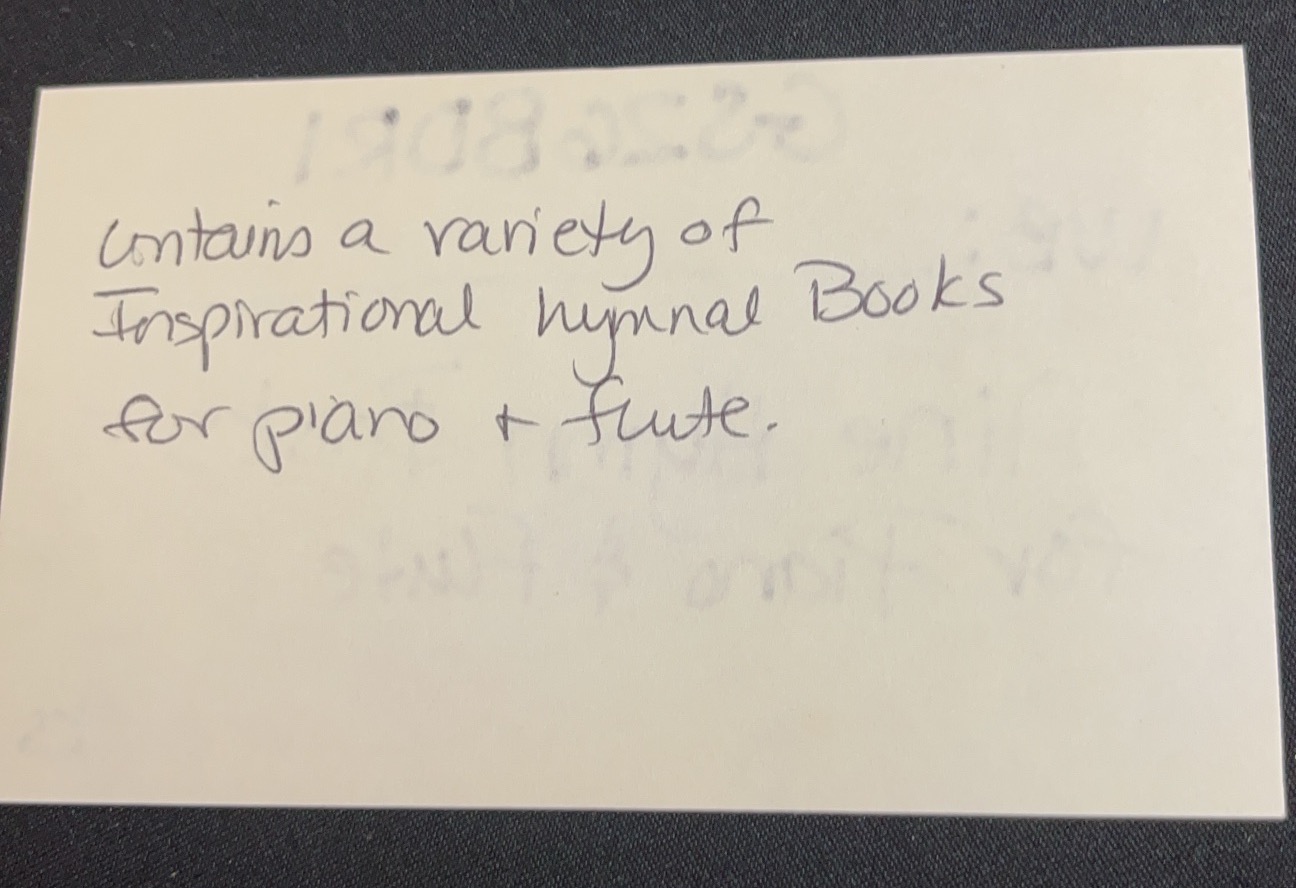 contains a variety of
Inspirational hymnal Books
for piano + flute.